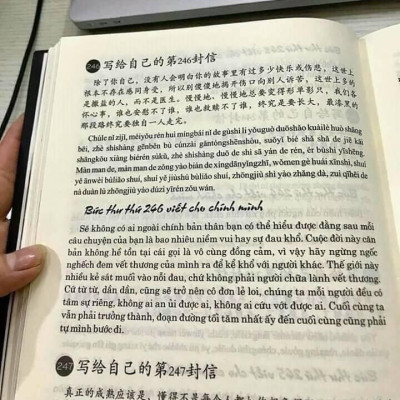 246 写给自己的第246封信
除了你自己，没有人会明白你的故事里有过多少快乐或伤悲，这世上
根本不存在感同身受，所以别傻傻地揭开伤口向别人诉苦，这世上多的
是撒盐的人，而不是医生。慢慢地，慢慢地总要变得形单影只，我们各
怀心事，谁也安慰不了谁，谁也救赎不了谁，终究是要长大，最漆黑的
那段路终究要独自一人走完。
Chúle nǐ zìjǐ, méiyǒu rén huì míngbái nǐ de gùshì li yǒuguò duōshǎo kuàilè huò shāng
bēi, zhè shìshàng gēnběn bù cúnzài gǎntóngshēnshòu, suǒyǐ bié shǎ shǎ de jiē kāi
shāngkǒu xiàng biérén sùkǔ, zhè shìshàng duō de shì sā yán de rén, ér bùshì yīshēng.
Màn man de, màn man de zǒng yào biàn de xíngdānyǐngzhī, wǒmen gè huái xīnshì, shuí
yě ānwèi bùliǎo shuí, shuí yě jiùshú bùliǎo shuí, zhōngjiù shì yào zhǎng dà, zuì qīhēi de
nà duàn lù zhōngjiù yào dúzì yīrén zǒu wán.
Bức thư thứ 246 viết cho chính mình
Sẽ không có ai ngoài chính bản thân bạn có thể hiểu được đằng sau mỗi
câu chuyện của bạn là bao nhiêu niềm vui hay sự đau khổ. Cuộc đời này căn
bản không hề tồn tại cái gọi là vô cùng đồng cảm, vì vậy hãy ngừng ngốc
nghếch đem vết thương của mình ra để kể khổ với người khác. Thế giới này
nhiều kẻ sát muối vào nỗi đau, chứ không phải người chữa lành vết thương.
Cứ từ từ, dần dần, cũng sẽ trở nên cô đơn lẻ loi, chúng ta mỗi người đều có
tâm sự riêng, không ai an ủi được ai, không ai cứu vớt được ai. Cuối cùng ta
vẫn phải trưởng thành, đoạn đường tối tăm nhất ấy đến cuối cùng cũng phải
tự mình bước đi.
247 写给自己的第247封信
真正的成熟应该是，懂得不是每个人